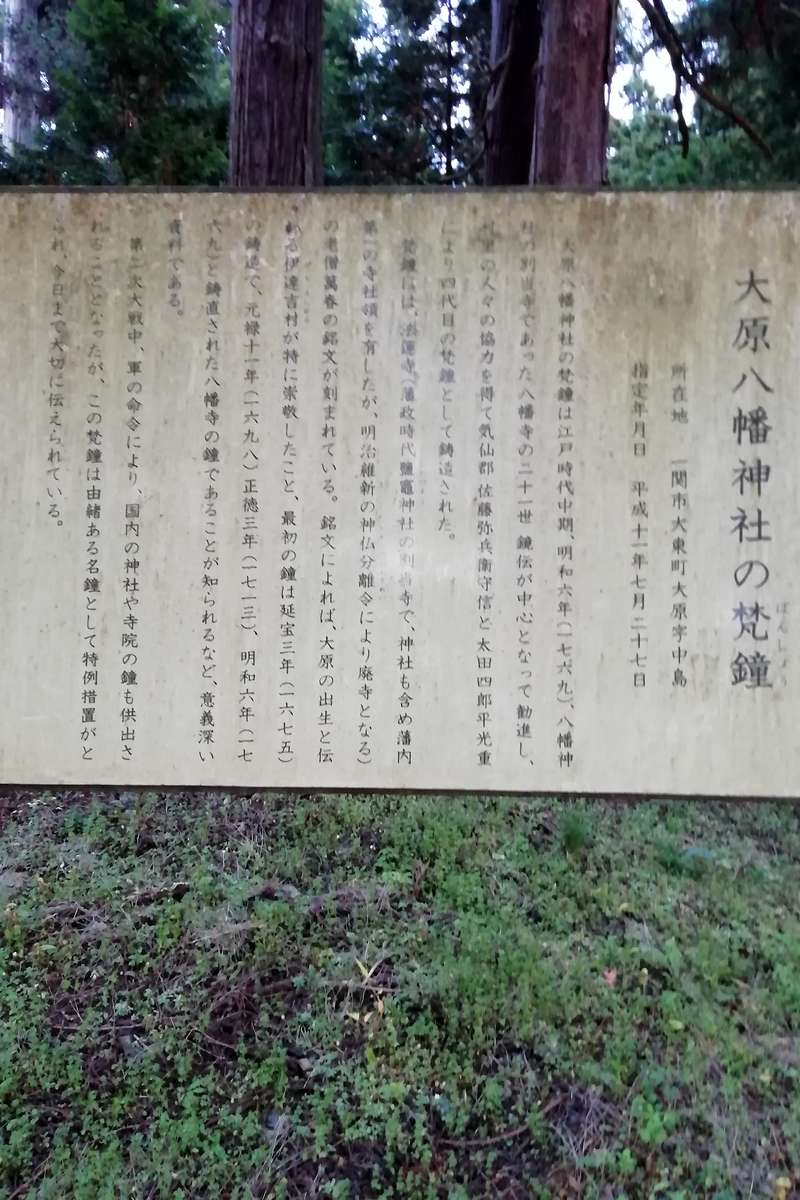 大原八幡神社の梵鐘
ぼんしょう
所在地 一関市大東町大原字中島
指定年月日 平成十一年七月二十七日
大原八幡神社の梵鐘は江戸時代中期、明和六年(一七六九)、八幡神
社の別当寺であった八幡寺の二十一世 鏡伝が中心となって勧進し、
の人々の協力を得て気仙郡佐藤弥兵衛守信と太田四郎平光重
により四代目の梵鐘として鋳造された。
梵鐘には、法蓮寺(藩政時代鹽竈神社の別当寺で、神社も含め藩内
第一の寺社領を有したが、明治維新の神仏分離令により廃寺となる)
の老僧萬春の銘文が刻まれている。銘文によれば、大原の出生と伝
わる伊達吉村が特に崇敬したこと、最初の鐘は延宝三年(一六七五)
の鋳造で、元禄十一年(一六九八)正徳三年(一七一三)、明和六年(一七
六九)と鋳直された八幡寺の鐘であることが知られるなど、意義深い
資料である。
第二次大戦中、軍の命令により、国内の神社や寺院の鐘も供出さ
れることとなったが、この梵鐘は由緒ある名鐘として特例措置がと
られ、今日まで大切に伝えられている。